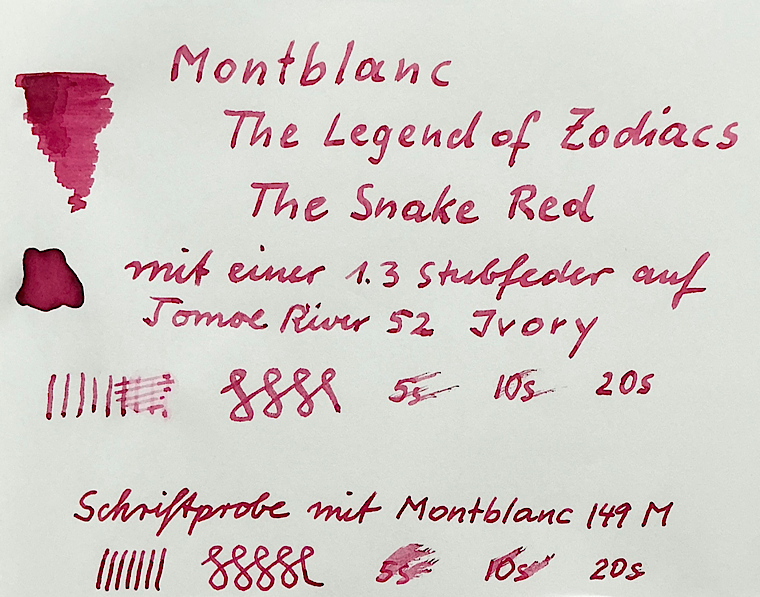 Montblanc
The Legend of Zodiacs
The Snake Red
mit einer 1.3 Stubfeder auf
Tomoe River 52 Ivory
5s 10s 20s
Schriftprobe mit Montblanc 149 M
5s 10s 20s